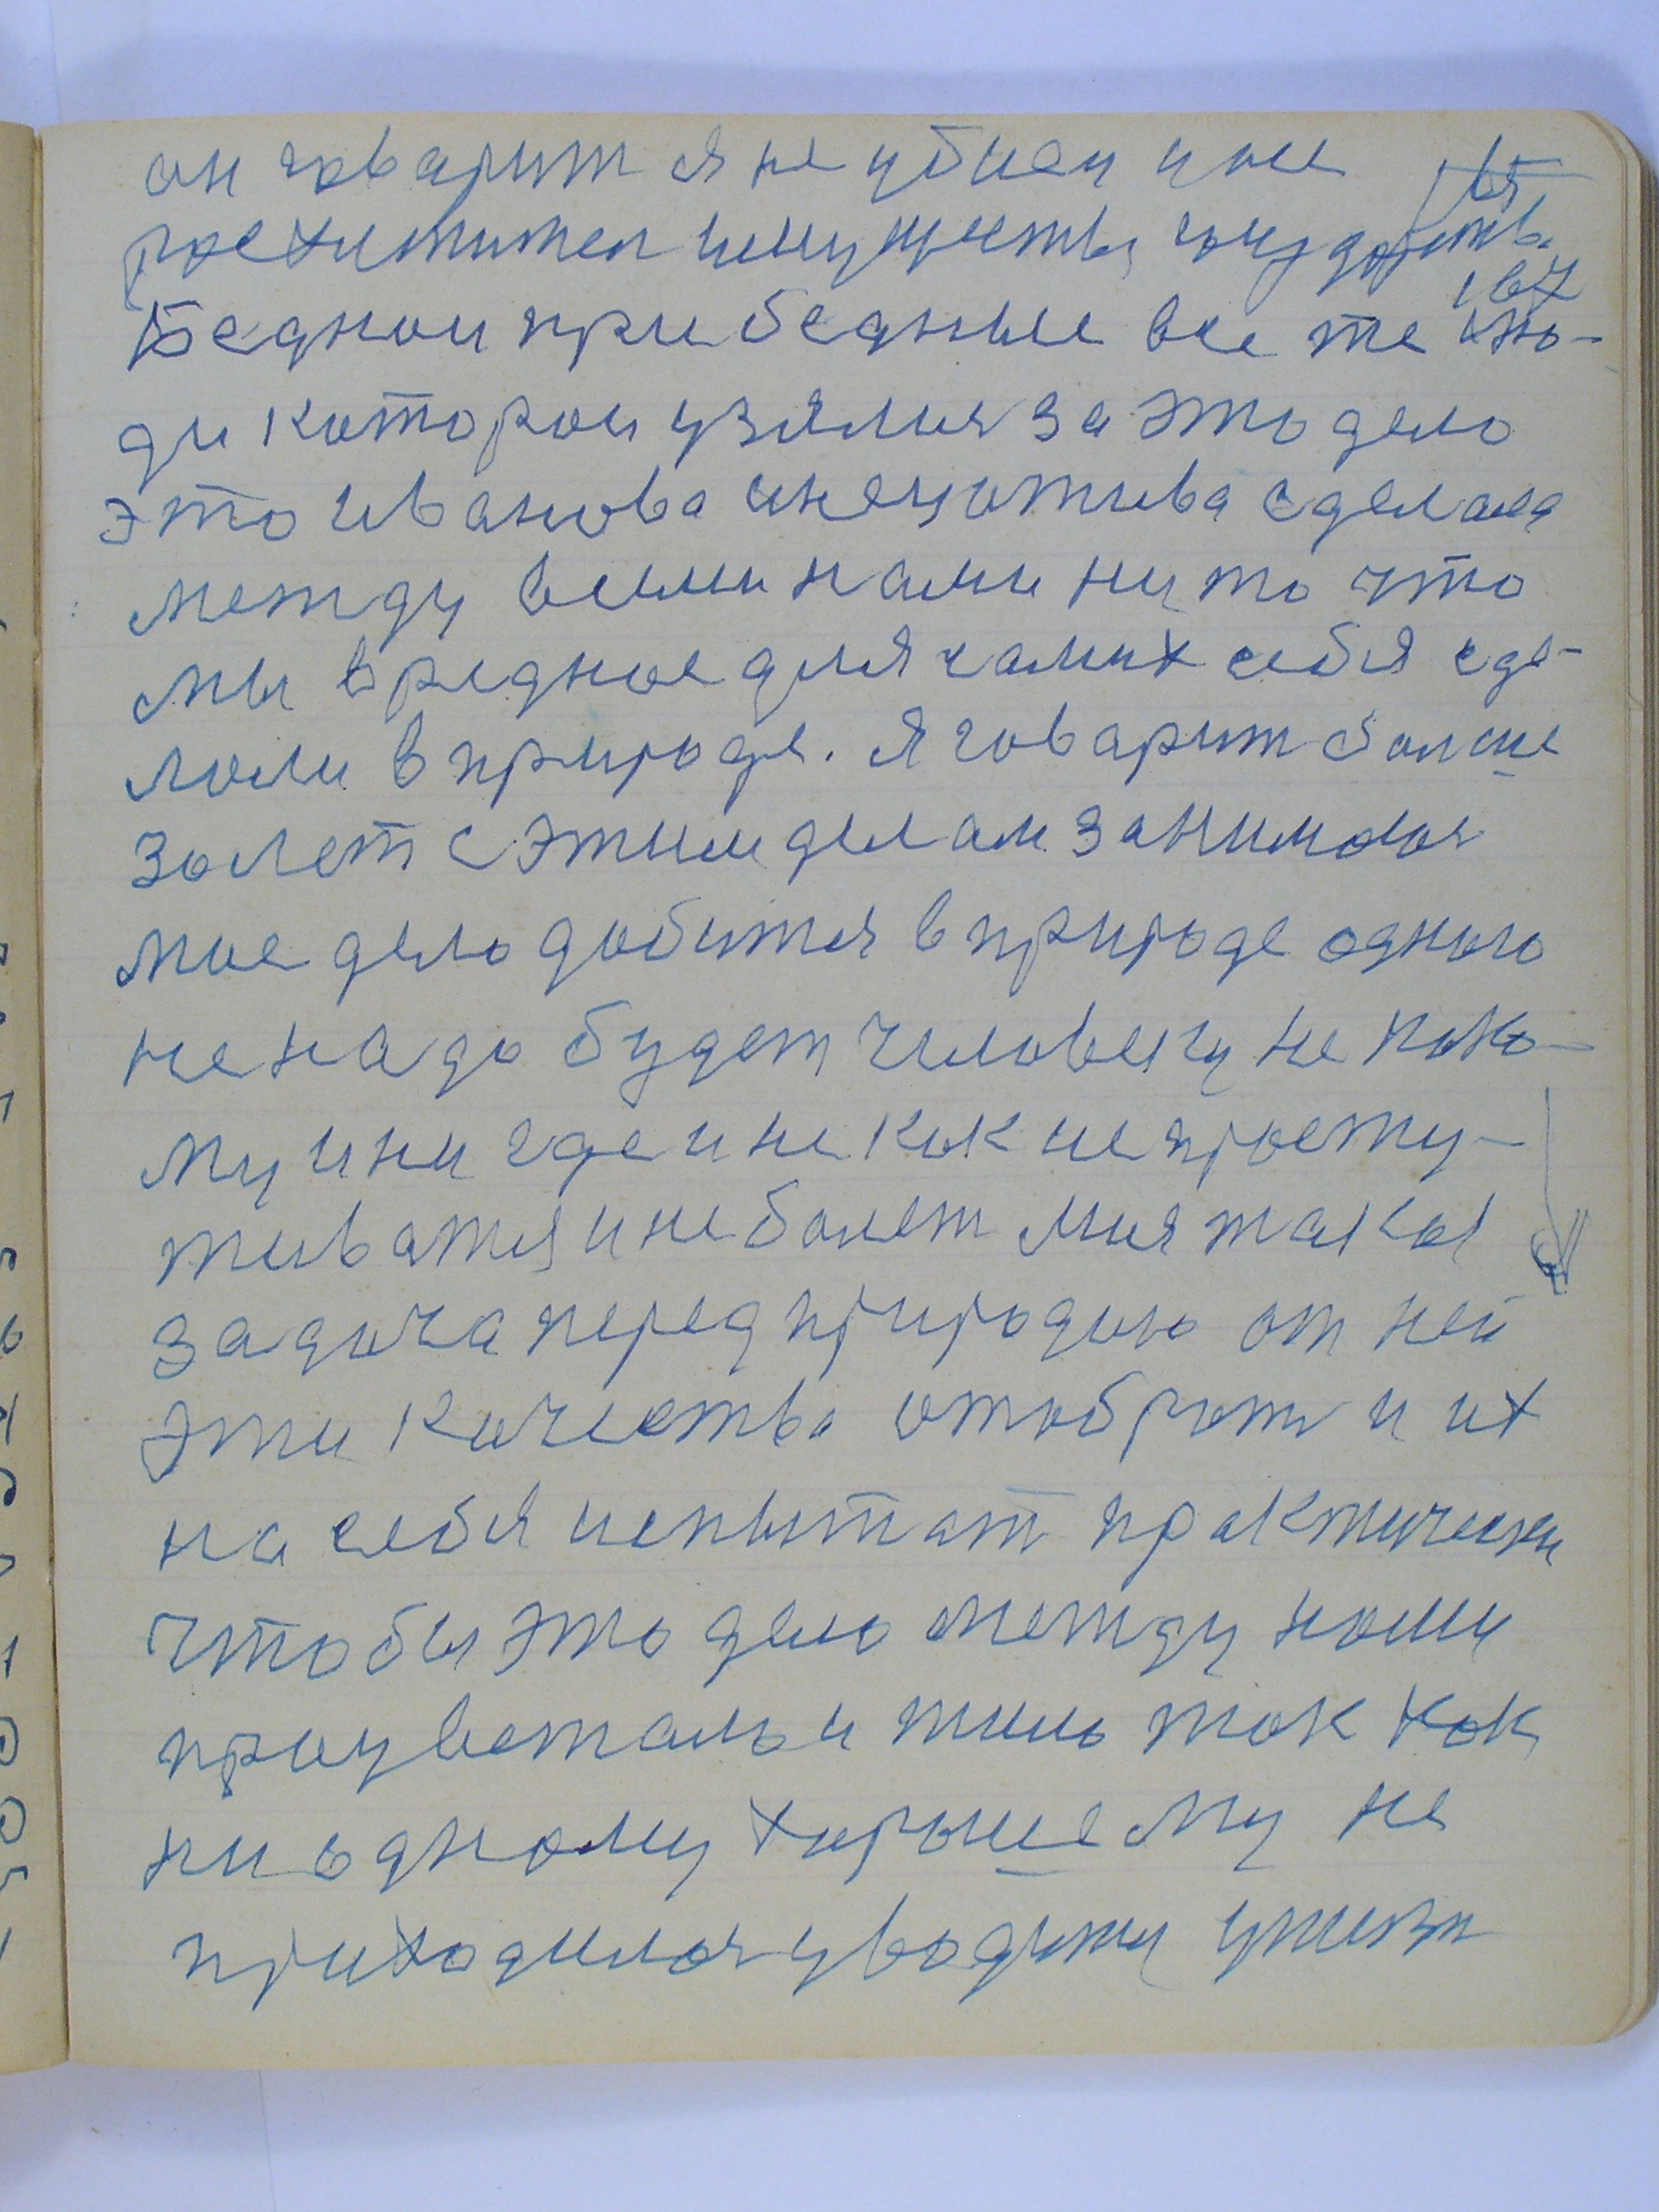 он говарит я не убиец и не
росхитител имущества государств.
Бедное прибедные все те лю-
ди которои узялися за это дело
это Иванова инецотива сделана
между всеми нами ну то что
мы вредное для самих себя сде-
лоли в природе. Я говарит болше
30 лет с этим делам занимаюся
мое дело добится в природе одного
не надо будет человеку не како-
му и ни где и не как не просту-
живатся и не болет Моя такая
задача перед природою от ней
эти качества отобрать и их
на себя испытат практически
что бы это дело между нами
процветало и жило так как
ни одному хорошему не
приходилося уводить жизн